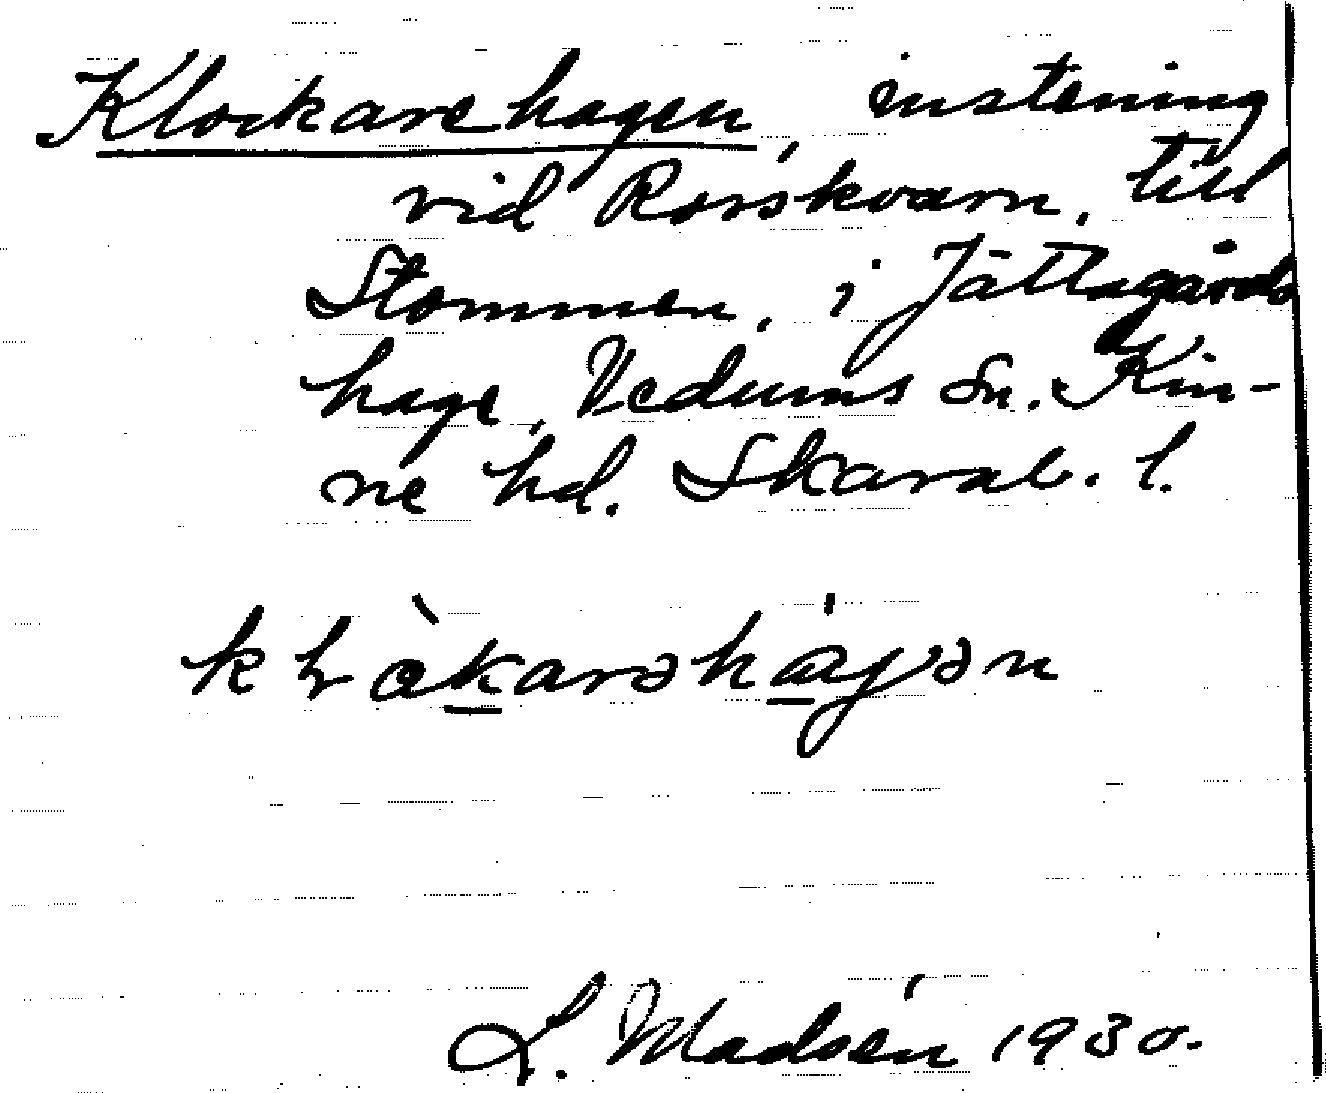 Klockarehagen, instening
vid Rorskvarn, till
Stommen, i Jättegårds
hage, Vedums sn. Kin-
ne hd. Skarab. l.
L. Madsén 1930.